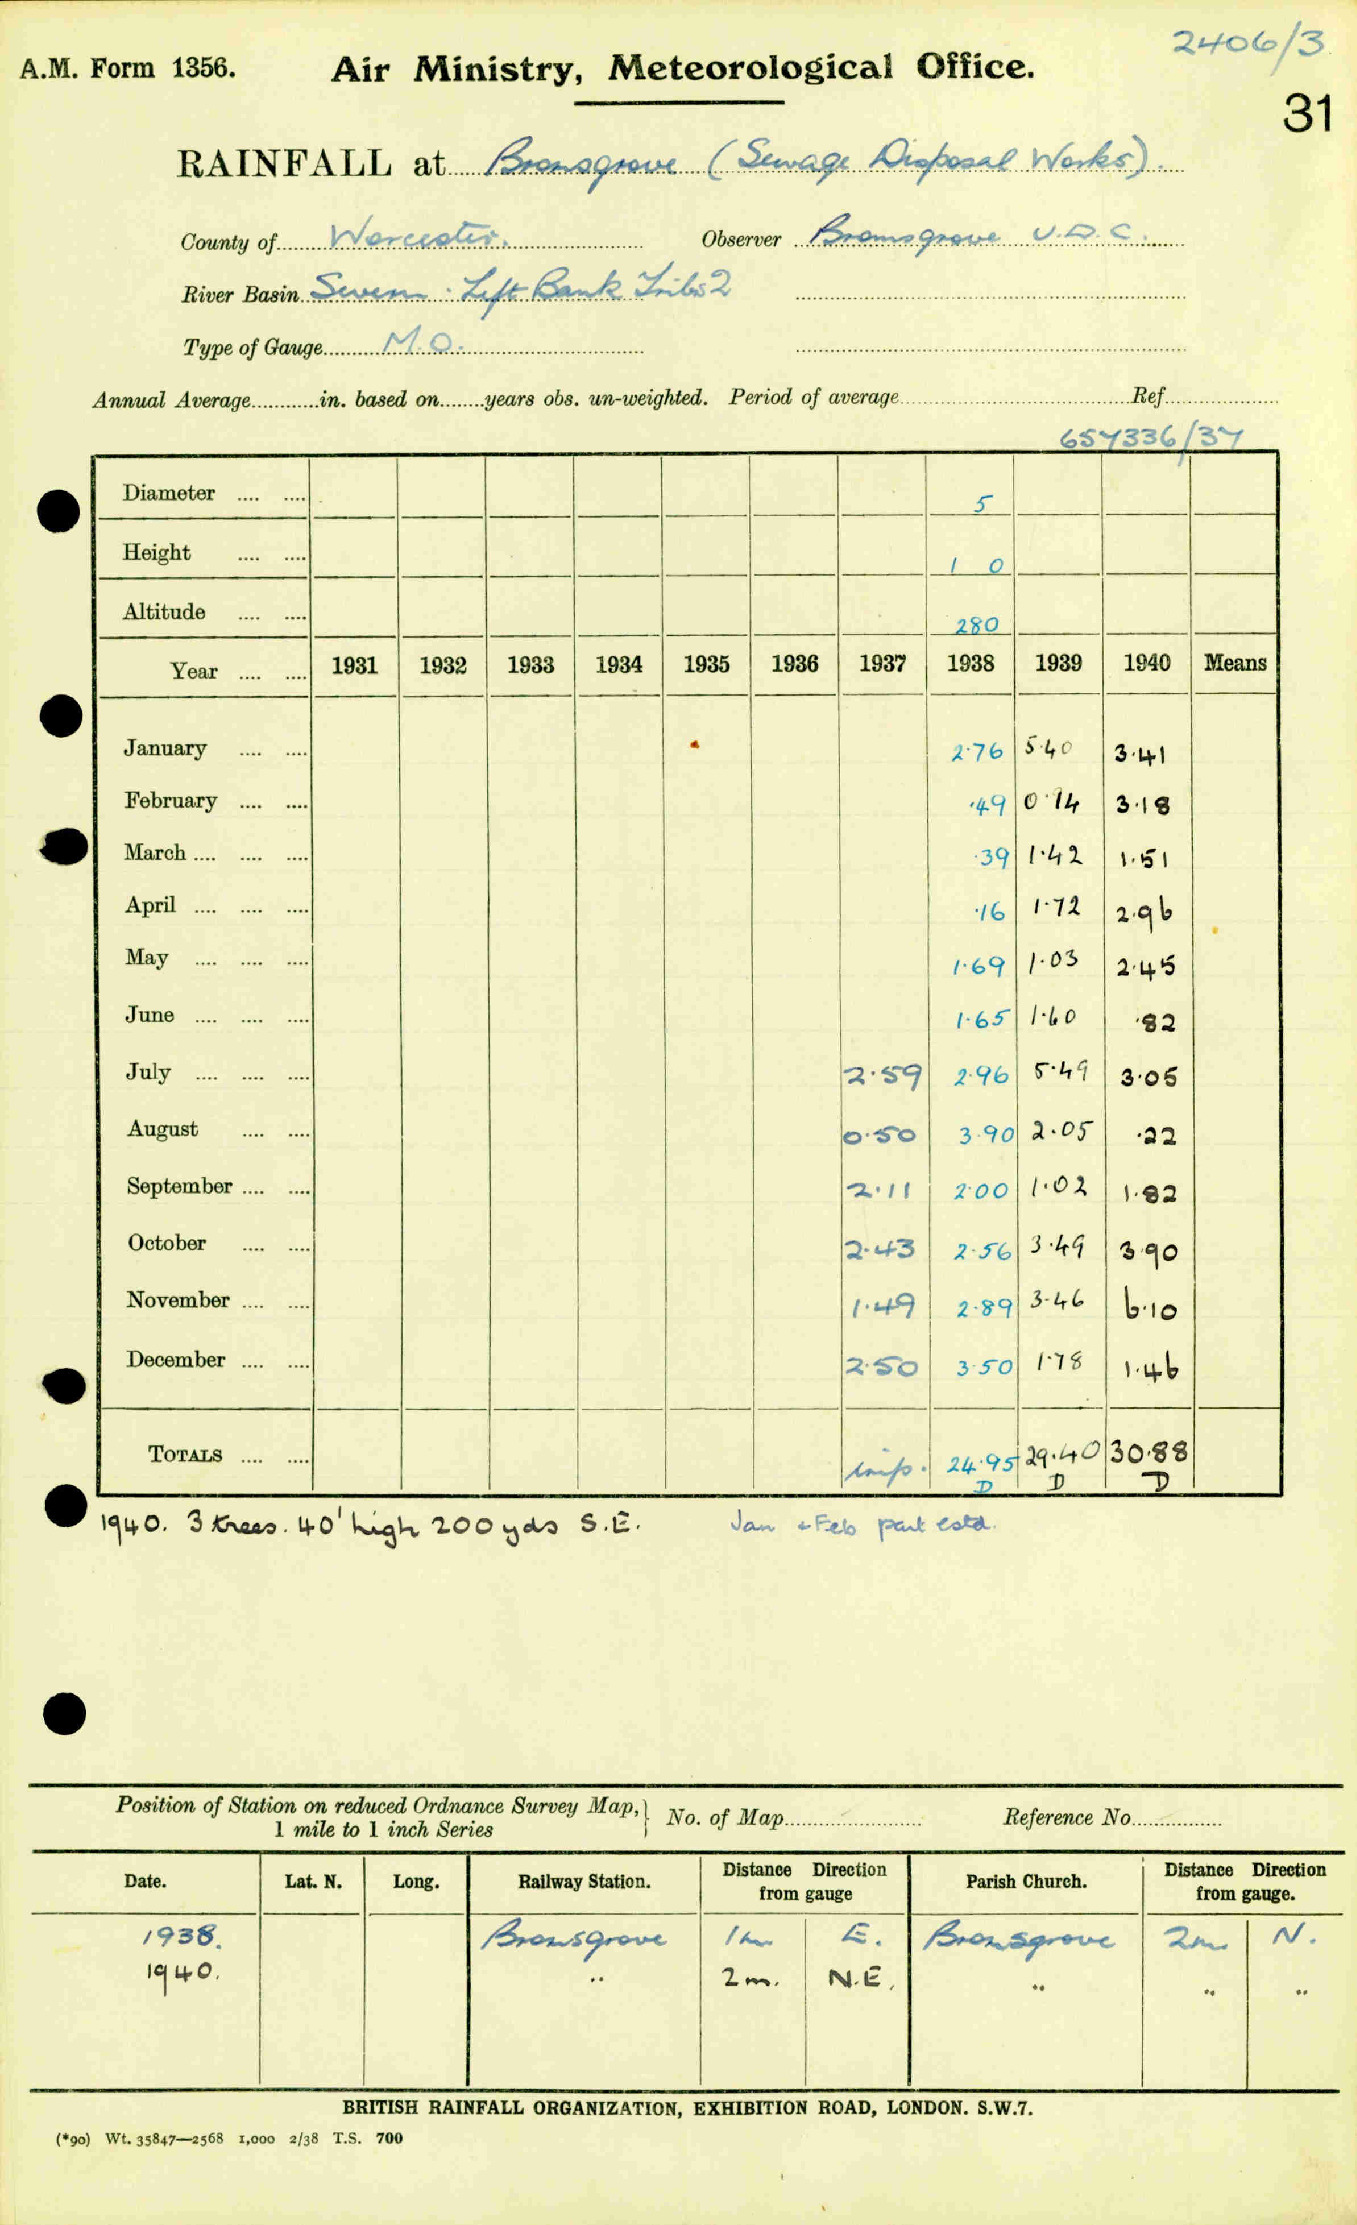 2406/3
A.M. Form 1356. Air Ministry, Meteorological Office.
31
RAINFALL at Bromsgrove (Sewage Disposal Works).
County of Worcester. Observer Bromsgrove U.D.C.
River Basin Severn. Left Bank Tribs 2
Type of Gauge M.O.
Annual Average in. based on years obs. un-weighted. Period of average Ref.
657336/37
Diameter 5
Height 1 0
Altitude 280
Year 1931 1932 1933 1934 1935 1936 1937 1938 1939 1940 Means
January 2.76 5.40 3.41
February .49 0.94 3.18
March .39 1.42 1.51
April .16 1.72 2.96
May 1.69 1.03 2.45
June 1.65 1.60 .82
July 2.59 2.96 5.49 3.05
August 0.50 3.90 2.05 .22
September 2.11 2.00 1.02 1.82
October 2.43 2.56 3.49 3.90
November 1.49 2.89 3.46 6.10
December 2.50 3.50 1.78 1.46
TOTALS imp. 24.95 29.40 30.88
D D D
1940. 3 trees. 40' high 200 yds S.E. Jan & Feb part estd.
Position of Station on reduced Ordnance Survey Map, 1 mile to 1 inch Series No. of Map Reference No.
Date. Lat. N. Long. Railway Station. Distance Direction from gauge Parish Church. Distance Direction from gauge.
1938. Bromsgrove 1m E. Bromsgrove 2m N.
1940. " 2m. N.E. " " "
BRITISH RAINFALL ORGANIZATION, EXHIBITION ROAD, LONDON. S.W.7.
(*90) Wt. 35847—2568 1,000 2/38 T.S. 700